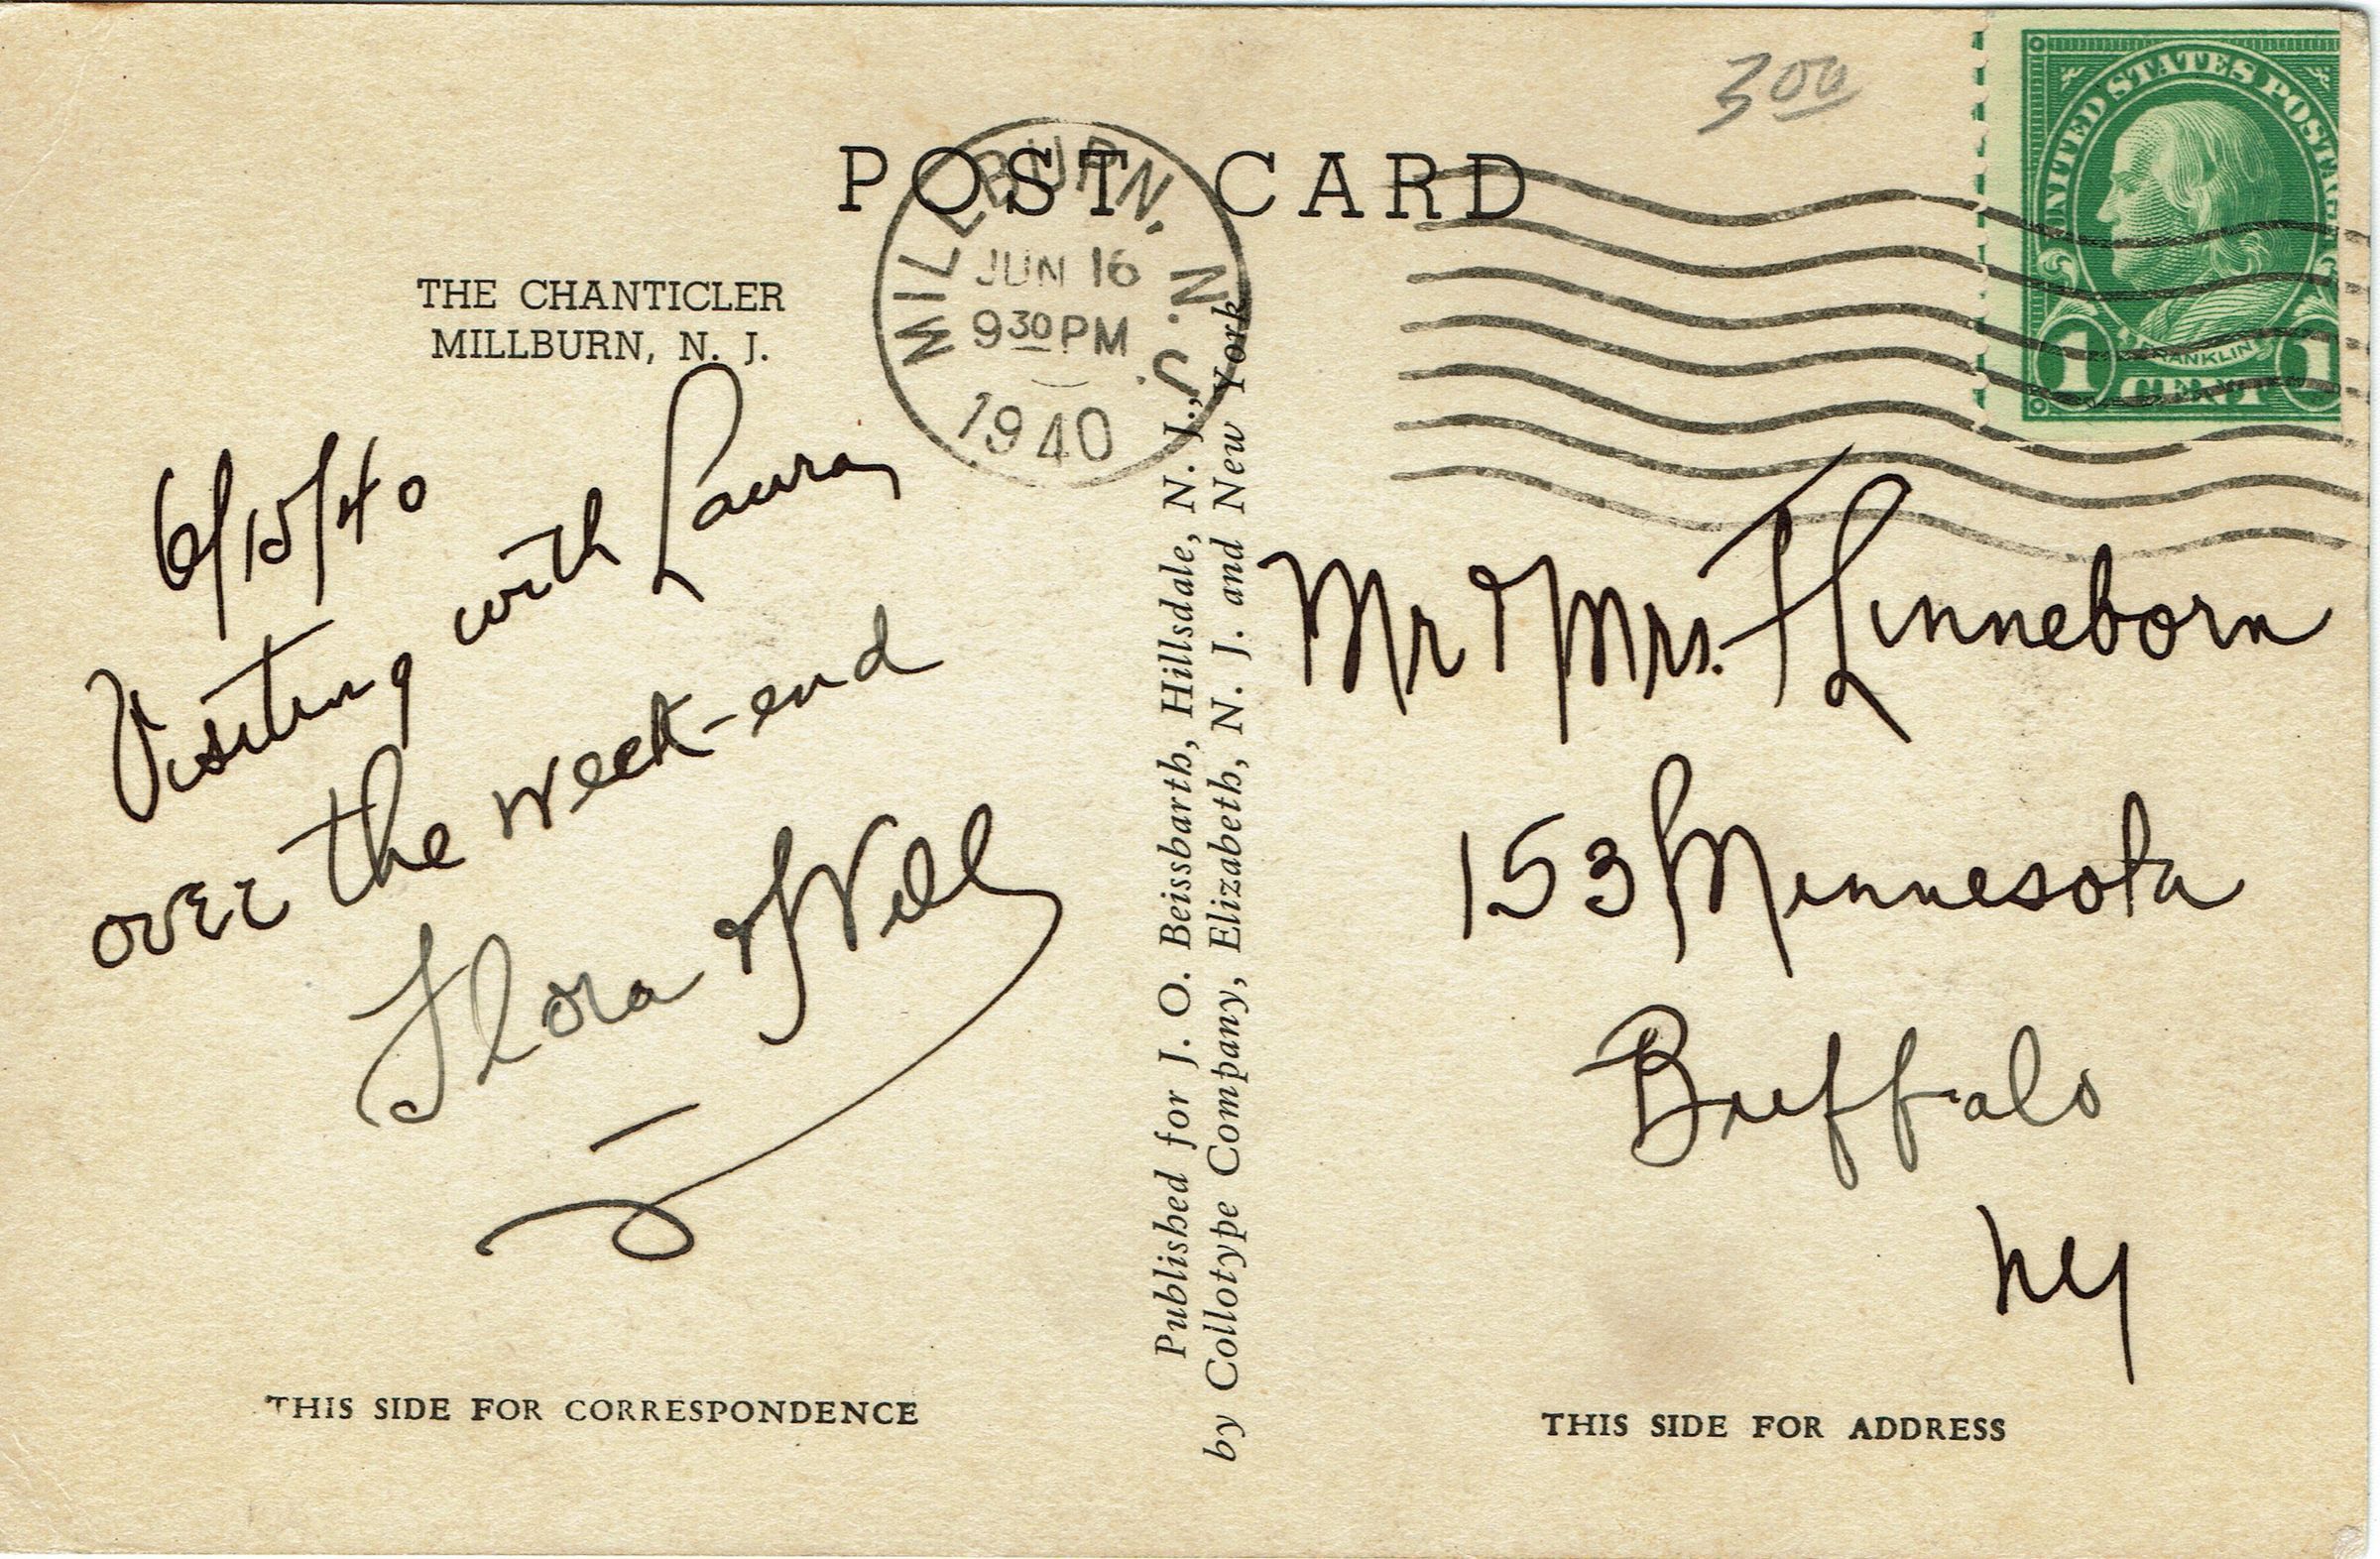 POST CARD
3 00
UNITED STATES POSTAGE
FRANKLIN
1 CENT 1
MILLBURN, N. J.
JUN 16
9 30 PM
1940
THE CHANTICLER
MILLBURN, N. J.
6/15/40
Visiting with Laura
over the week-end
Flora & Will
Published for J. O. Beissbarth, Hillsdale, N. J.,
by Collotype Company, Elizabeth, N. J. and New York
Mr & Mrs. F Linneborn
153 Minnesota
Buffalo
NY
THIS SIDE FOR CORRESPONDENCE
THIS SIDE FOR ADDRESS